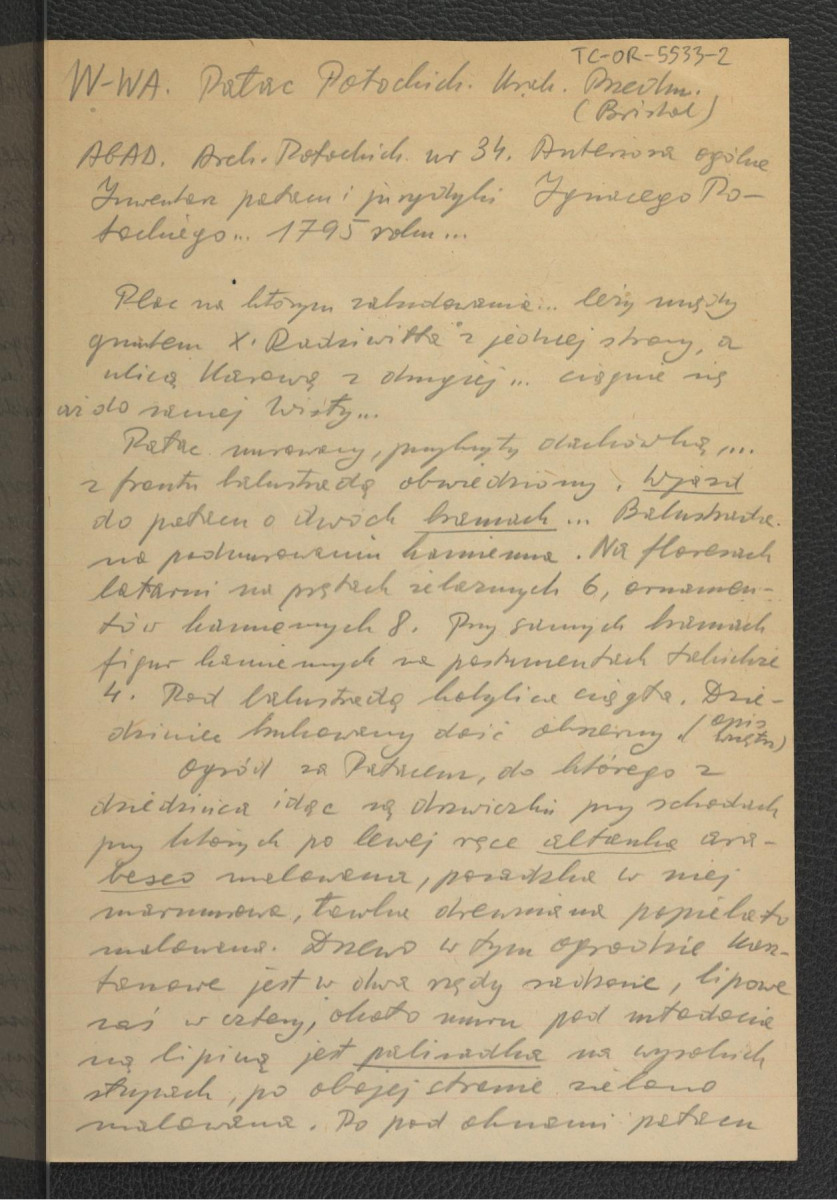 TC-OR-5533-2
W-WA. Pałac Potockich. Krak. Przedm.
(Bristol)
AGAD. Arch. Potockich nr 34. Anteriora ogólne
Inwentarz pałacu i jurydyki Ignacego Po-
tockiego... 1795 roku...
Plac na którym zabudowania... leży między
gruntem X. Radziwiłła z jednej strony, a
ulicą Karową z drugiej... ciągnie się
aż do samej Wisły...
Pałac murowany, przykryty dachówką,...
z frontu balustradą obwiedziony. Wjazd
do pałacu o dwóch bramach... Balustrada
na podmurowaniu kamienna. Na floresach
latarni na prętach żelaznych 6, ornamen-
tów kamiennych 8. Przy samych bramach
figur kamiennych na postumentach takichże
4. Pod balustradą kobylica ciągła. Dzie-
dziniec brukowany dość obszerny. (opis
wnętrz)
Ogród za Pałacem, do którego z
dziedzińca idąc są drzwiczki przy schodach
przy których po lewej ręce altanka ara-
besco malowana, posadzka w niej
marmurowa, ławka drewniana popielato
malowana. Drzewo w tym ogrodzie kasz-
tanowe jest w dwa rzędy sadzone, lipowe
zaś w cztery, około muru pod młodocia
ną lipiną jest palisadka na wysokich
słupach, po obojej stronie zielono
malowana. Po pod oknami pałacu